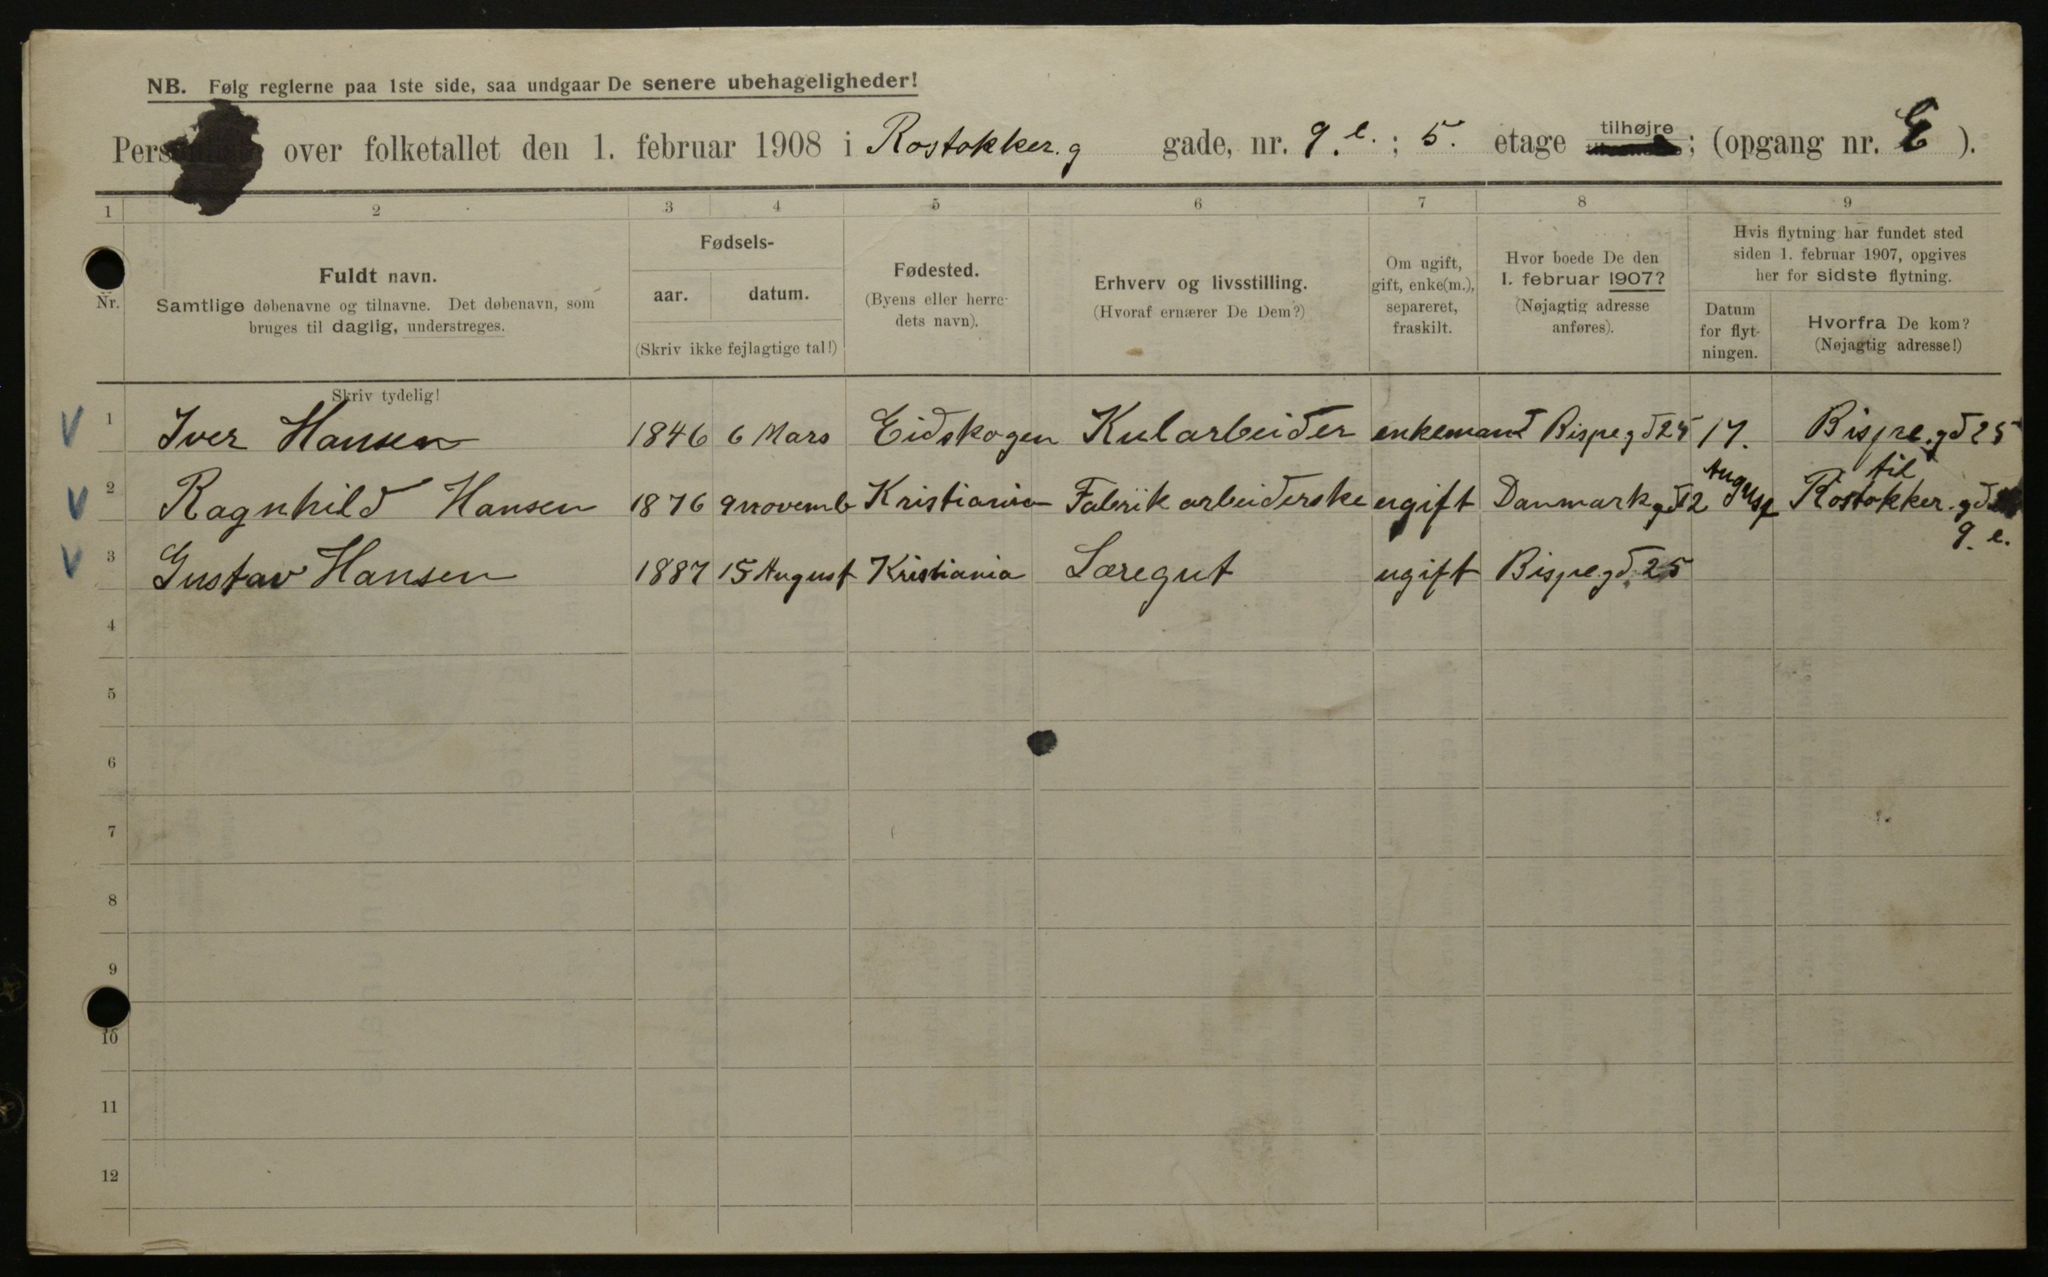 NB. Følg reglerne paa 1ste side, saa undgaar De senere ubehageligheder!
over folketallet den 1. februar 1908 i Rostokker.g gade, nr. 9.e. ; 5. etage tilhøjre ; (opgang nr. E ).
1 2 3 4 5 6 7 8 9
Nr.
Fuldt navn.
Samtlige døbenavne og tilnavne. Det døbenavn, som
bruges til daglig, understreges.
Skriv tydelig!
Fødsels-
aar. datum.
(Skriv ikke fejlagtige tal!)
Fødested.
(Byens eller herre-
dets navn).
Erhverv og livsstilling.
(Hvoraf ernærer De Dem?)
Om ugift,
gift, enke(m.),
separeret,
fraskilt.
Hvor boede De den
1. februar 1907?
(Nøjagtig adresse
anføres).
Hvis flytning har fundet sted
siden 1. februar 1907, opgives
her for sidste flytning.
Datum
for flyt-
ningen.
Hvorfra De kom?
(Nøjagtig adresse!)
1 Iver Hansen 1846 6 Mars Eidskogen Kularbeider enkemand Bispegd 25 17. Bispe.gd 25
2 Ragnhild Hansen 1876 9 novemb Kristiania Fabrik arbeiderske ugift Danmark gd 12 August til Rostokker.gd
9. e.
3 Gustav Hansen 1887 15 August Kristiania Læregut ugift Bispegd. 25
4
5
6
7
8
9
10
11
12